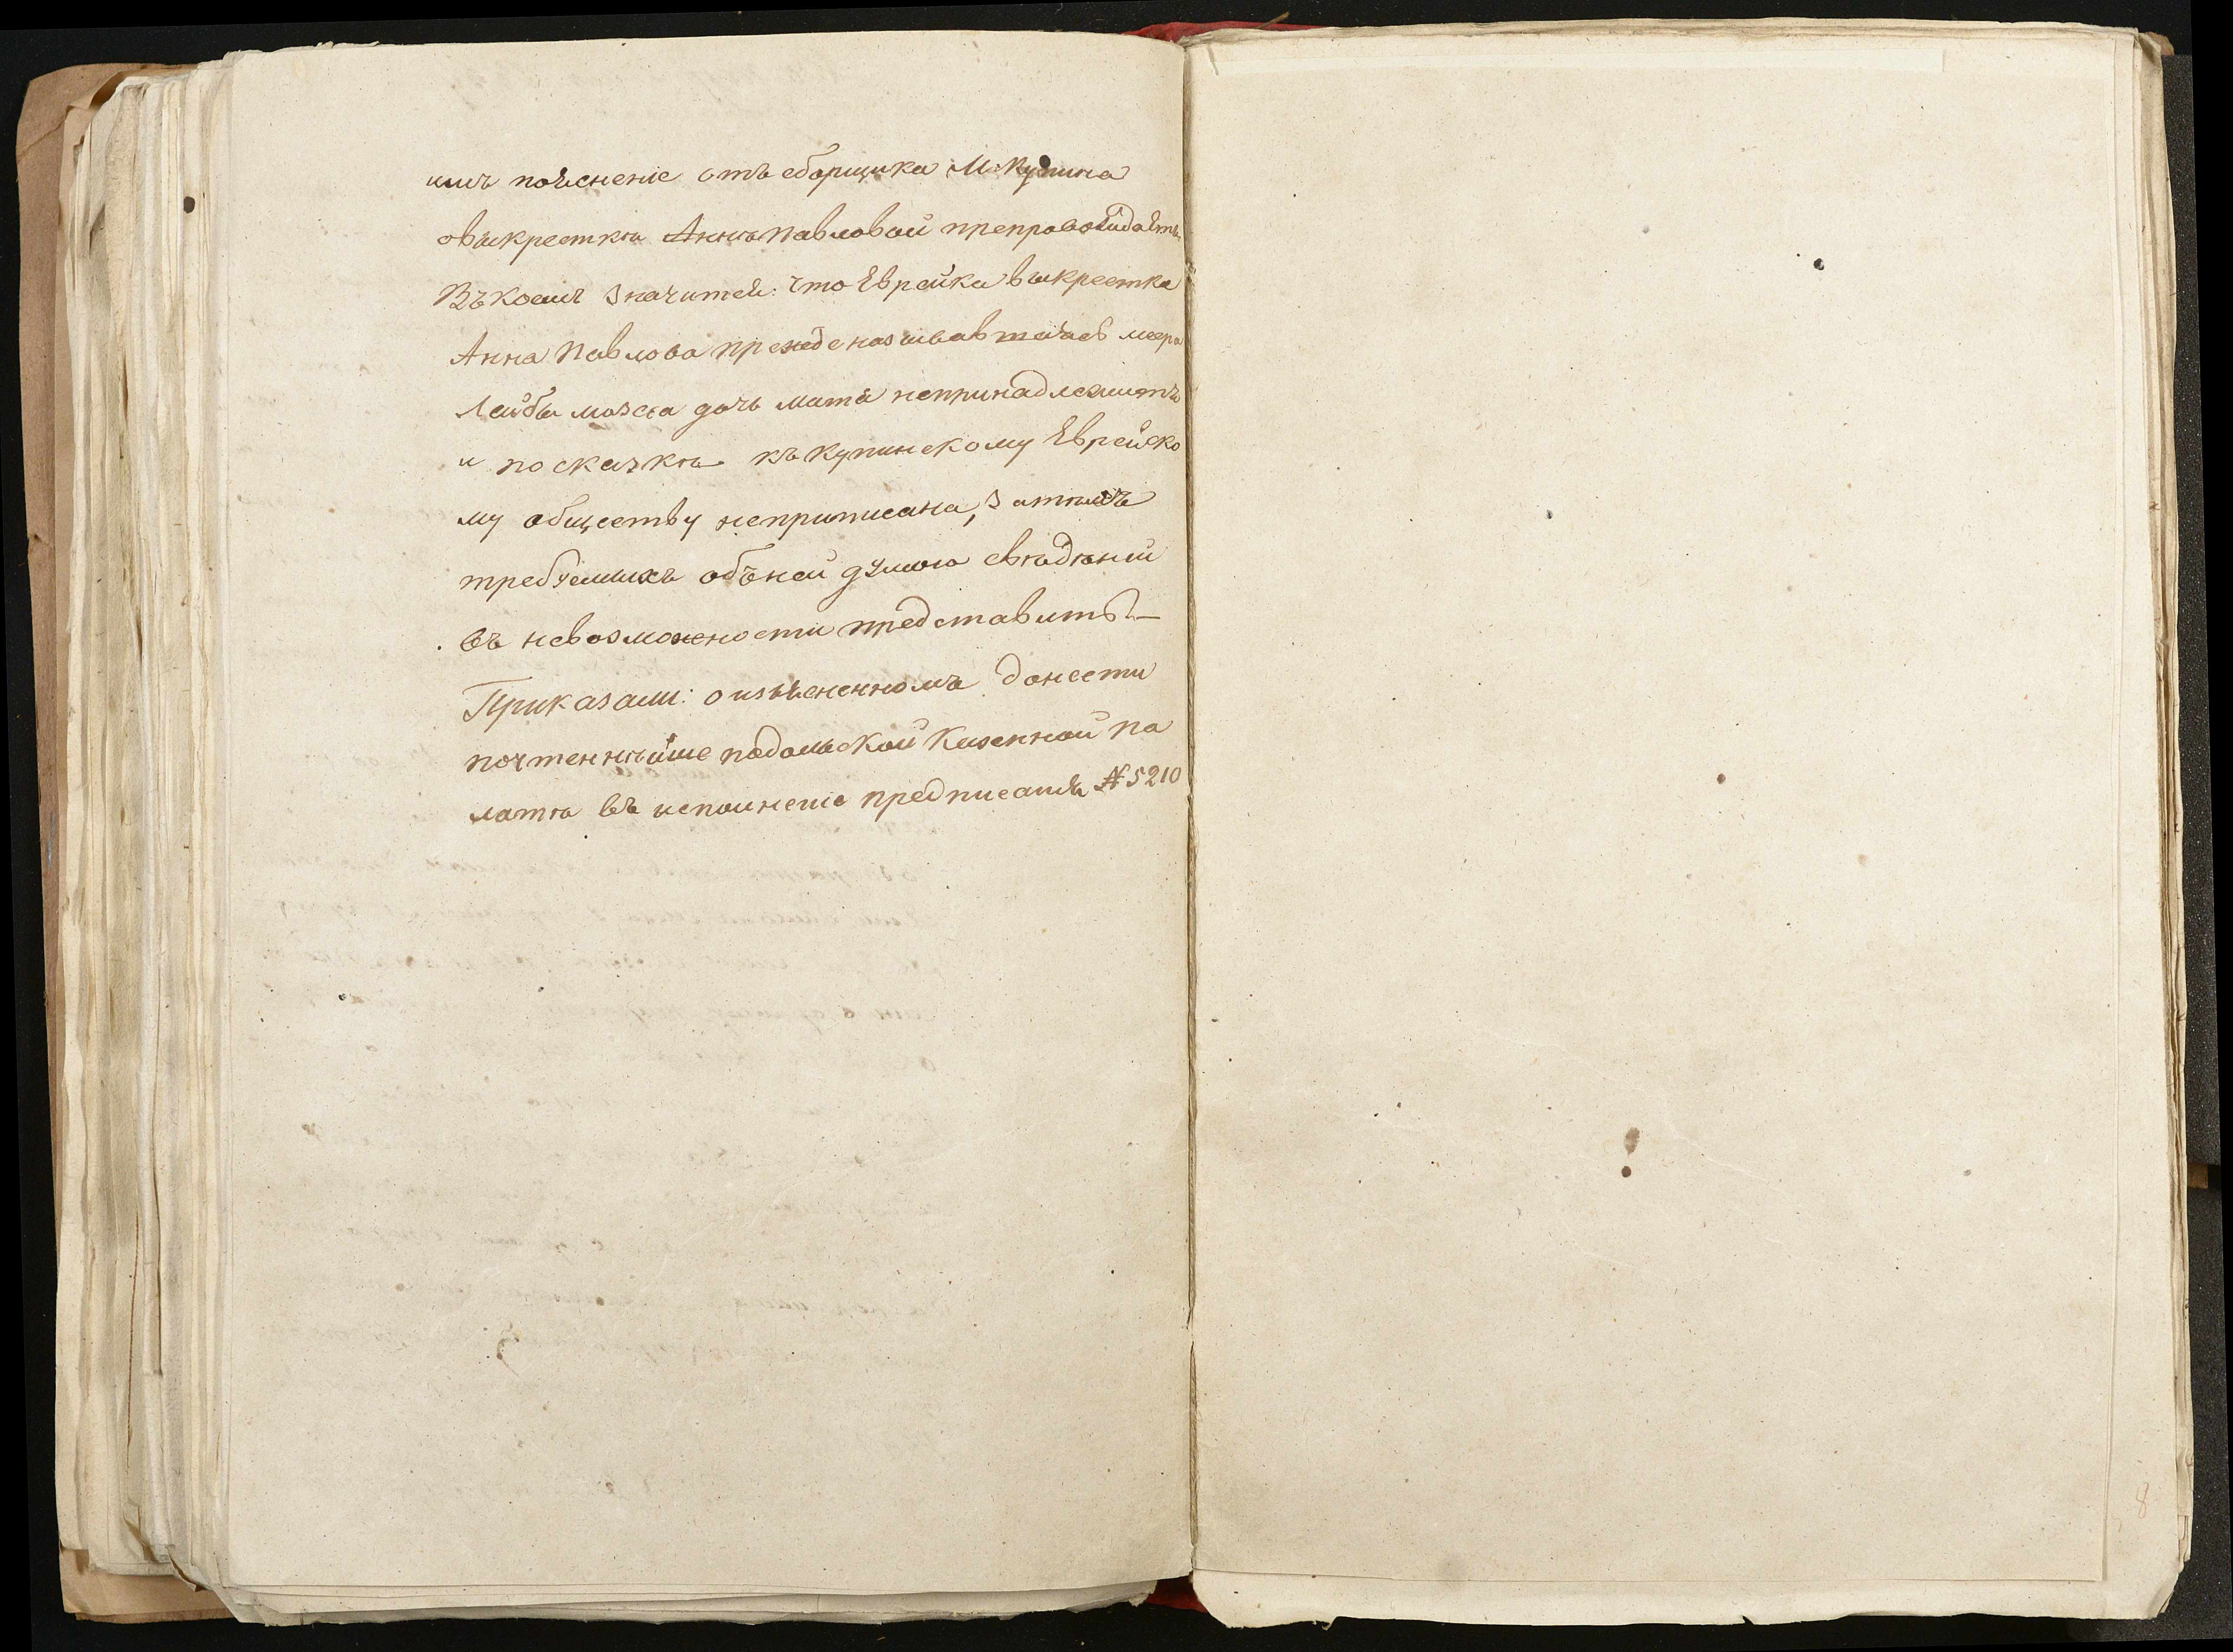 имъ пояснение отъ сборщика М: Купина
овыкресткѣ Аннѣ Павловой препровождаетъ
Въкоемъ значится: что Еврейка выкрестка
Анна Павлова прежде называвшаяся меера
Лейбы дочь мать непринадлежитъ
и посказкѣ къ купинскому Еврейско
му обществу неприписана, затѣмъ
требуемыхъ обоней думою свѣдѣній
въ невозможности представить —
Приказали: о изъясненномъ донести
почтеннѣйше подольской Казенной па
латѣ въ исполнение предписания № 5210
8